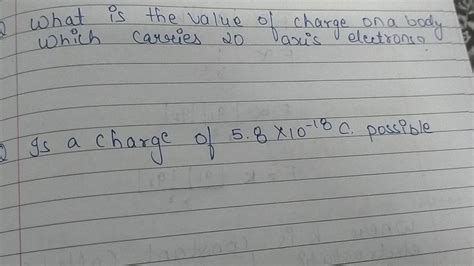 Q What is the value of charge on a body
which carries 20 axis electrons
Q Is a charge of 5.8 × 10⁻¹⁸ C. possible